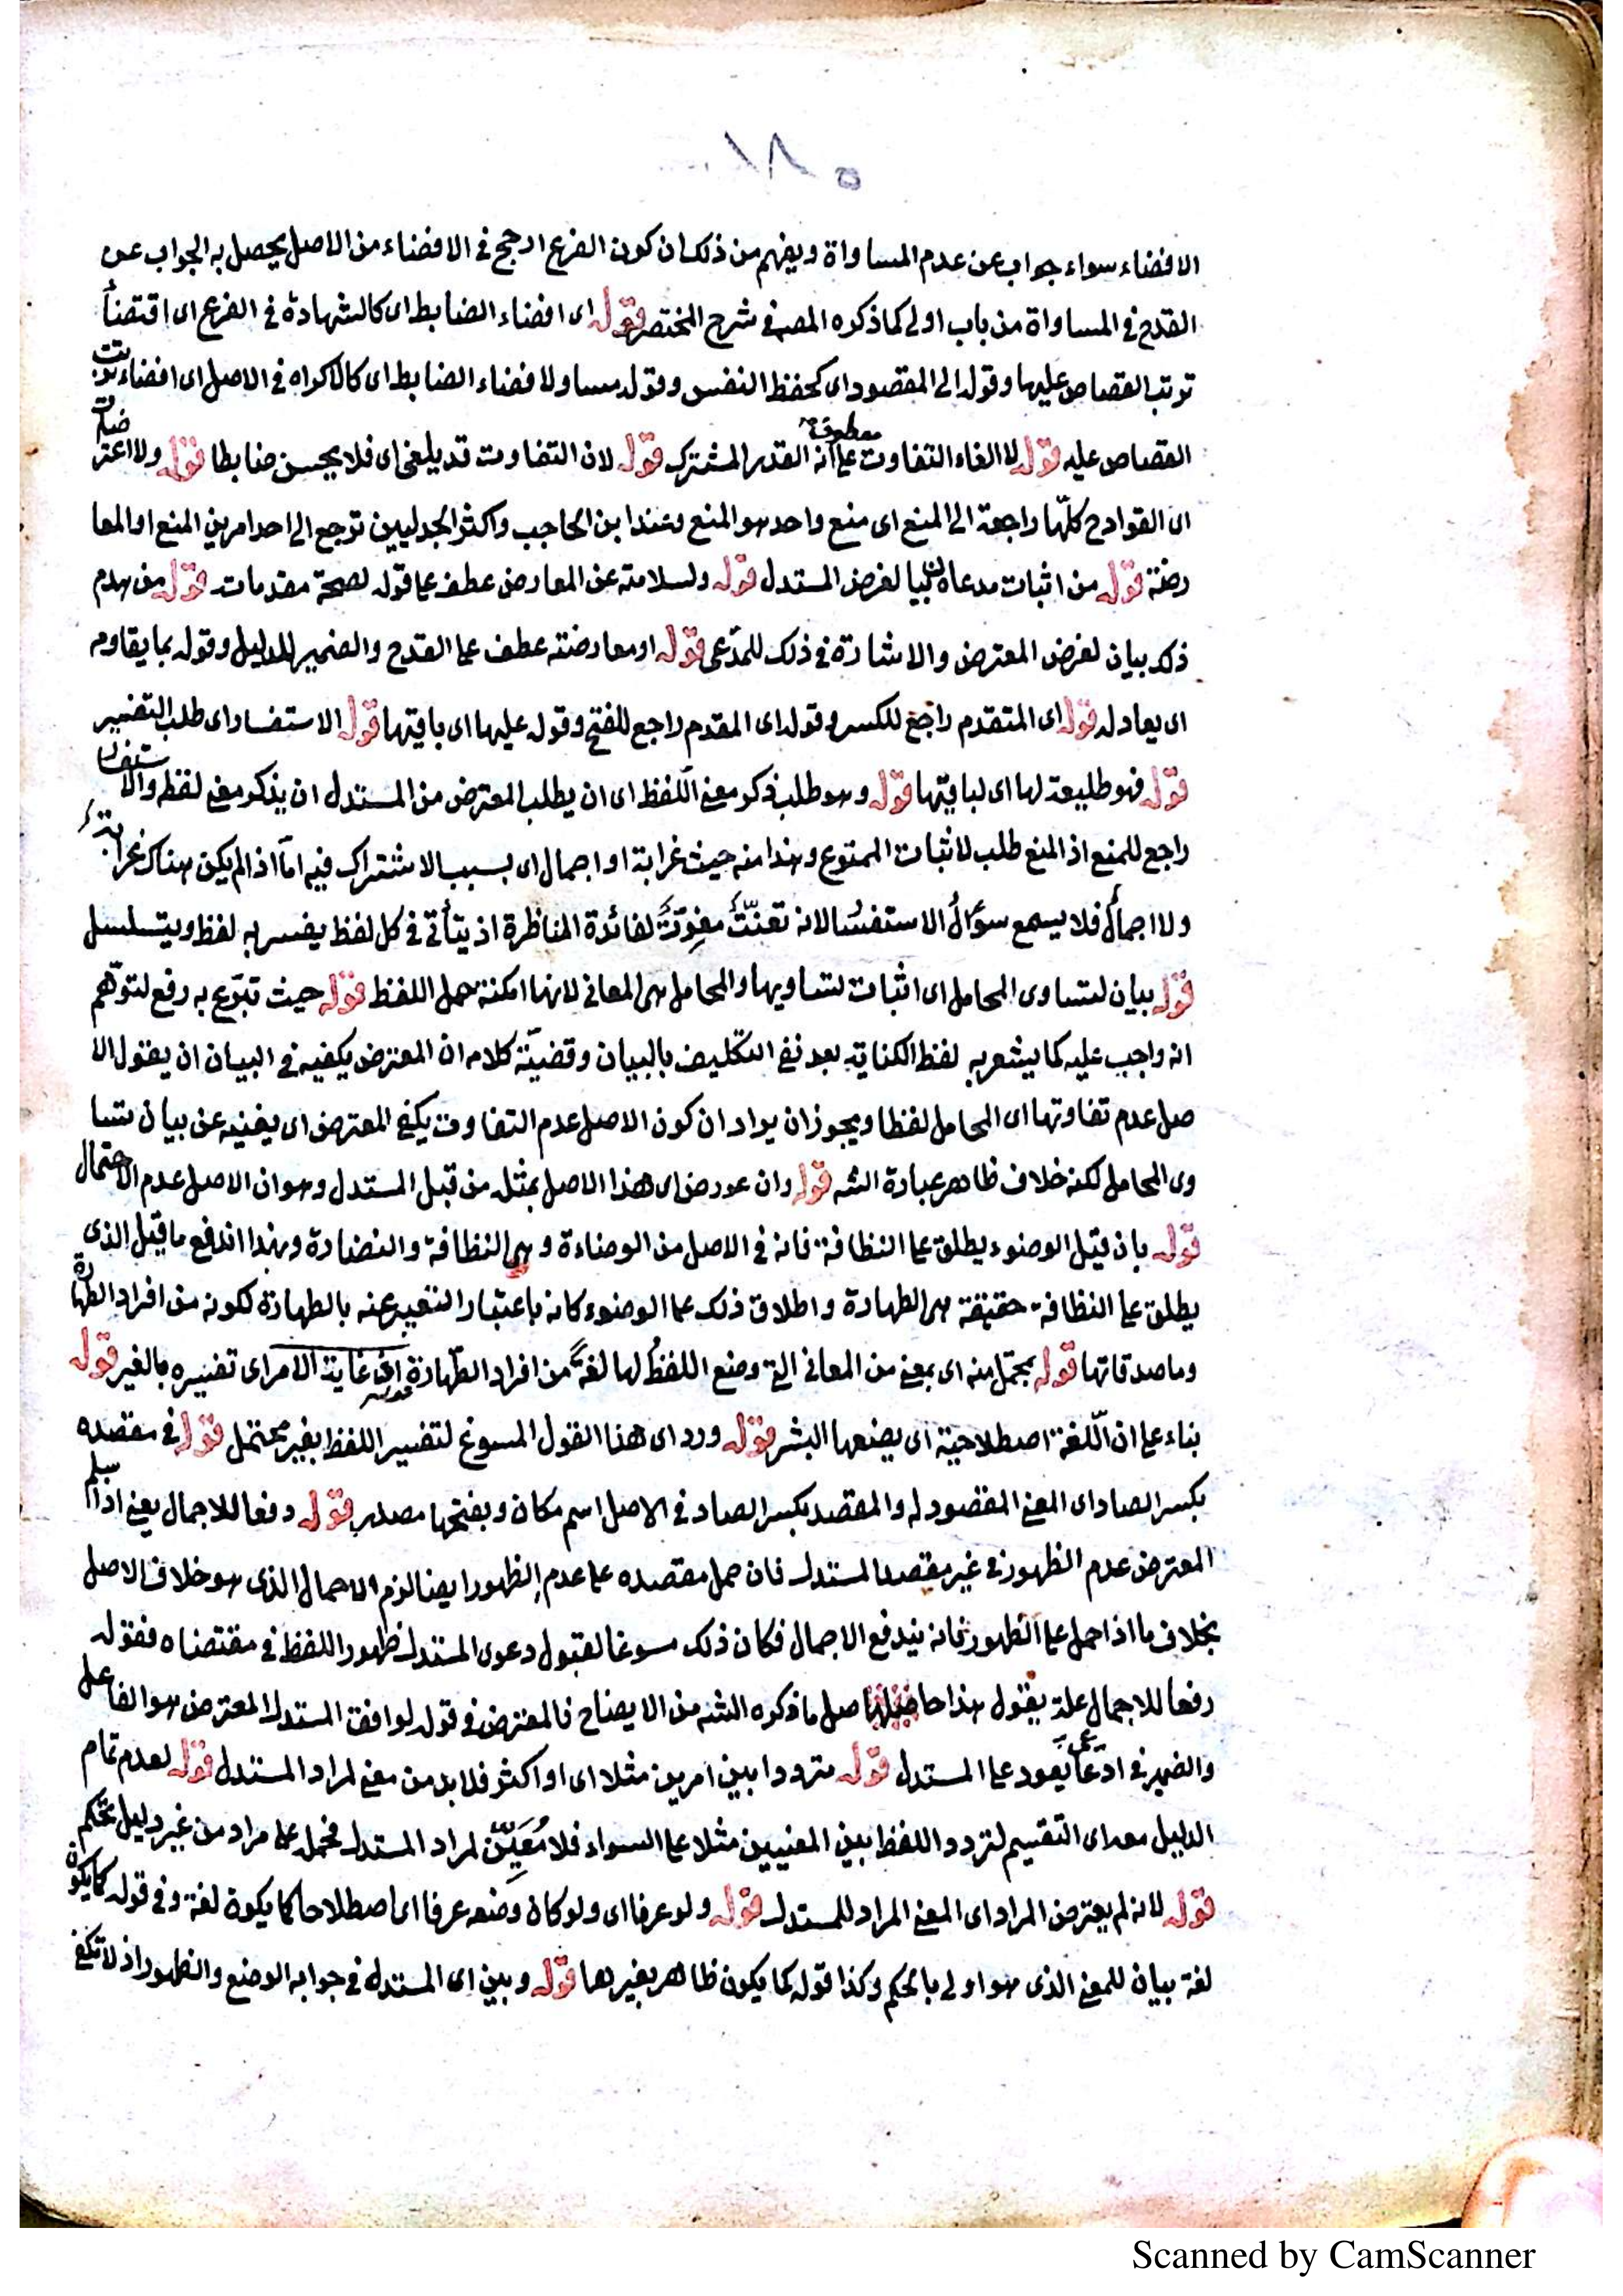 ٥٨١
الافضاء سواء جواب عن عدم المساواة ويفهم من ذلك ان كون الفرع ارجح في الافضاء من الاصل يحصل به الجواب عن
القدح في المساواة من باب اولى كما ذكره المصـ في شرح المختصر قوله اى افضاء الضابط اى كالشهادة في الفرع اى اقتضاء
ترتب القصاص عليها وقوله الى المقصود اى كحفظ النفس وقوله مساو لافضاء الضابط اى كالاكراه في الاصل اى افضاء ترتب
القصاص عليه قوله لا الغاء التفاوت معطوفة على انه القدر المشترك قوله لان التفاوت قد يلغى اى فلا يحسن ضابطا قوله والاعتراضات
اى القوادح كلّها راجعة الى المنع اى منع واحد هو المنع وعند ابن الحاجب واكثر الجدليين ترجع الى احد امرين المنع او المعا
رضة قوله من اثبات مدعاه بيا لغرض المستدل قوله ولسلامته عن المعارض عطف على قوله لصحة مقدمات قوله من هدم
ذلك بيان لغرض المعترض والاشارة في ذلك للمدّعى قوله او معارضته عطف على القدح والضمير للدليل وقوله بما يقاومه
اى يعادله قوله اى المتقدم راجع للكسر وقوله اى المقدم راجع للفتح وقوله عليها اى باقيتها قوله الاستفسار اى طلب التفسير
قوله فهو طليعة لها اى لباقيتها قوله وهو طلب ذكر معنى اللفظ اى ان يطلب المعترض من المستدل ان يذكر معنى لفظه والاستفسار
راجع للمنع اذ المنع طلب لاثبات الممنوع وهذا منه حيث غرابة او اجمال اى بسبب الاشتراك فيه امّا اذا لم يكن هناك غرابة
ولا اجمال فلا يسمع سؤال الاستفسار لانه تعنّت مفوّت لفائدة المناظرة اذ يتأتى في كل لفظ يفسر به لفظ ويتسلسل
قوله بيان لتساوى المحامل اى اثبات لتساويها والمحامل هى المعانى لانها امكنة حمل اللفظ قوله حيث تبرّع به رفع لتوهم
انه واجب عليه كما يشعر به لفظ الكناية بعد نفى التكليف بالبيان وقضيّة كلامه ان المعترض يكفيه في البيان ان يقول الا
صل عدم تفاوتها اى المحامل لفظا ويجوز ان يراد ان كون الاصل عدم التفاوت يكفى المعترض اى يغنيه عن بيان تسا
وى المحامل لكنه خلاف ظاهر عبارة الشـ قوله وان عورض اى هذا الاصل بمثله من قبل المستدل وهو ان الاصل عدم الاحتمال
قوله بان قيل الوضوء يطلق على النظافة فانه في الاصل من الوضاءة وهى النظافة والنضارة وبهذا اندفع ما قيل الذى
يطلق على النظافة حقيقة هى الطهارة واطلاق ذلك على الوضوء كانه باعتبار التعبير عنه بالطهارة لكونه من افراد الطهارة
وما صدقاتها قوله بمحتمل منه اى بمعنى من المعانى التى وضع اللفظ لها لغة من افراد الطّهارة غاية الامر اى تفسيره بالغير قوله
بناء على ان اللّغة اصطلاحية اى يضعها البشر قوله ورد اى هذا القول المسوغ لتفسير اللفظ بغير محتمل قوله في مقصده
بكسر الصاد اى المعنى المقصود له والمقصد بكسر الصاد في الاصل اسم مكان وبفتحها مصدر قوله دفعا للاجمال يعنى اذا سلم
المعترض عدم الظهور في غير مقصد المستدل فان حمل مقصده على عدم الظهور ايضا لزم الاجمال الذى هو خلاف الاصل
بخلاف ما اذا حمل على الظهور فانه يندفع الاجمال فكان ذلك مسوغا لقبول دعوى المستدل ظهور اللفظ في مقتضاه فقوله
رفعا للاجمال علة يقول هذا حاصل ما ذكره الشـ من الايضاح فالمعترض في قوله لوافقت المستدل المعترض هو الفاعل
والضمير في ادّعى يعود على المستدل قوله مترددا بين امرين مثلا اى او اكثر فلا بد من معنى لمراد المستدل قوله لعدم تمام
الدليل معه اى التقسيم لتردد اللفظ بين المعنيين مثلا على السواء فلا مُعَيِّن لمراد المستدل فحمله على مراد من غير دليل تحكم
قوله لانه لم يعترض المراد اى المعنى المراد للمستدل قوله ولو عرفا اى ولو كان وضعه عرفا اى اصطلاحا كما يكون لغة وفى قوله كما يكون
لغة بيان للمعنى الذى هو اولى بالحكم وكذا قوله كما يكون ظاهر بغيرها قوله وبين اى المستدل في جوابه الوضع والظهور اذ لا تكفى
Scanned by CamScanner